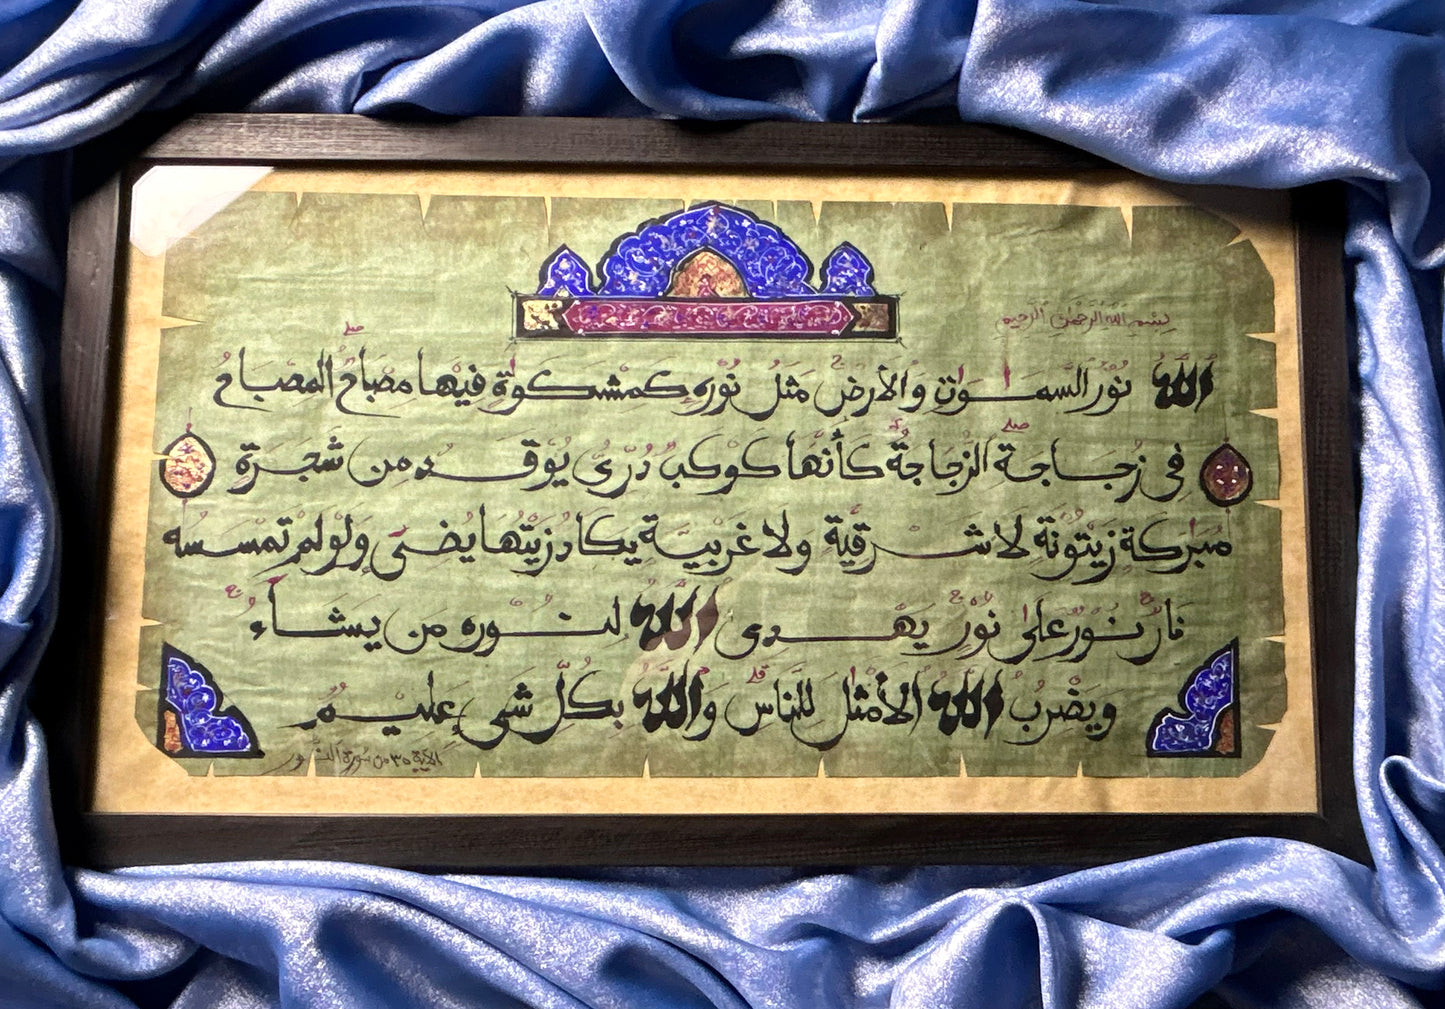 بسم الله الرحمن الرحيم
الله نور السمٰوٰت والأرض مثل نوره كمشكوٰة فيها مصباح المصباح
فى زجاجة الزجاجة كأنها كوكب درى يوقد من شجرة
مبٰركة زيتونة لا شرقية ولا غربية يكاد زيتها يضىء ولو لم تمسسه
نار نور على نور يهدى الله لنوره من يشاء
ويضرب الله الأمثٰل للناس والله بكل شىء عليم
الآية ٣٥ من سورة النور